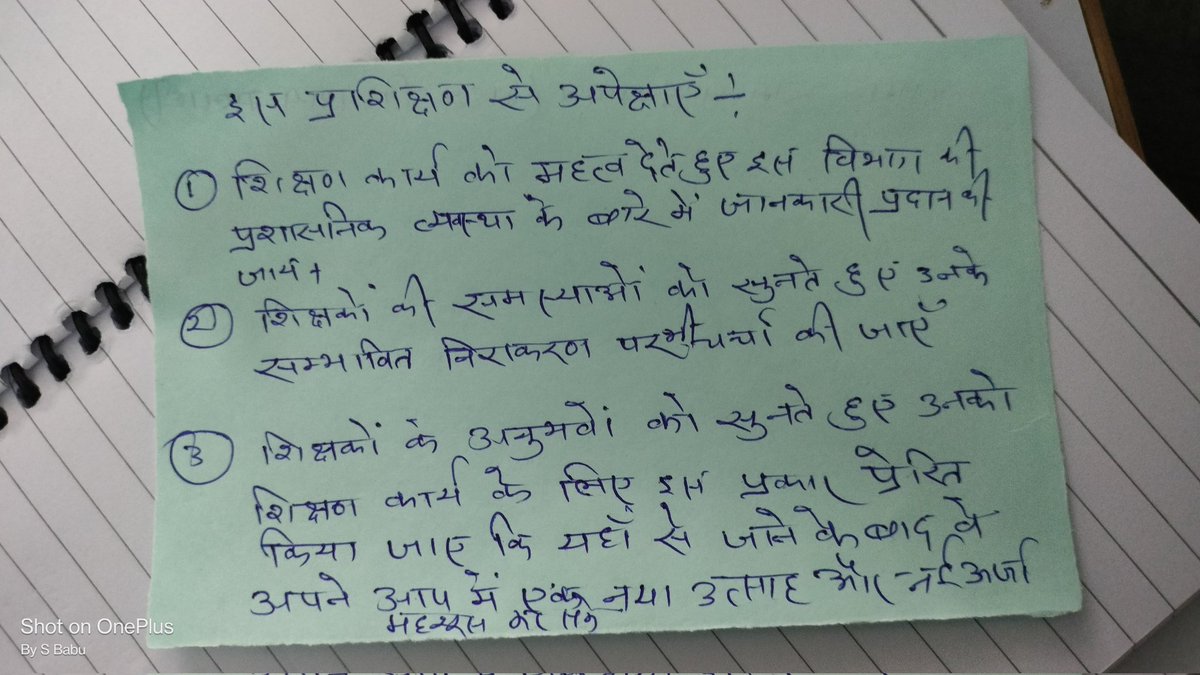 इस प्रशिक्षण से अपेक्षाएँ ÷
① शिक्षण कार्य को महत्व देते हुए इस विभाग की
प्रशासनिक व्यवस्था के बारे में जानकारी प्रदान की
जाये।
② शिक्षकों की समस्याओं को सुनते हुए उनके
सम्भावित निराकरण पर भी चर्चा की जाएँ
③ शिक्षकों के अनुभवों को सुनते हुए उनको
शिक्षण कार्य के लिए इस प्रकार प्रेरित
किया जाए कि यहाँ से जाने के बाद वे
अपने आप में एक नया उत्साह और नई ऊर्जा
महसूस कर सके
Shot on OnePlus
By S Babu